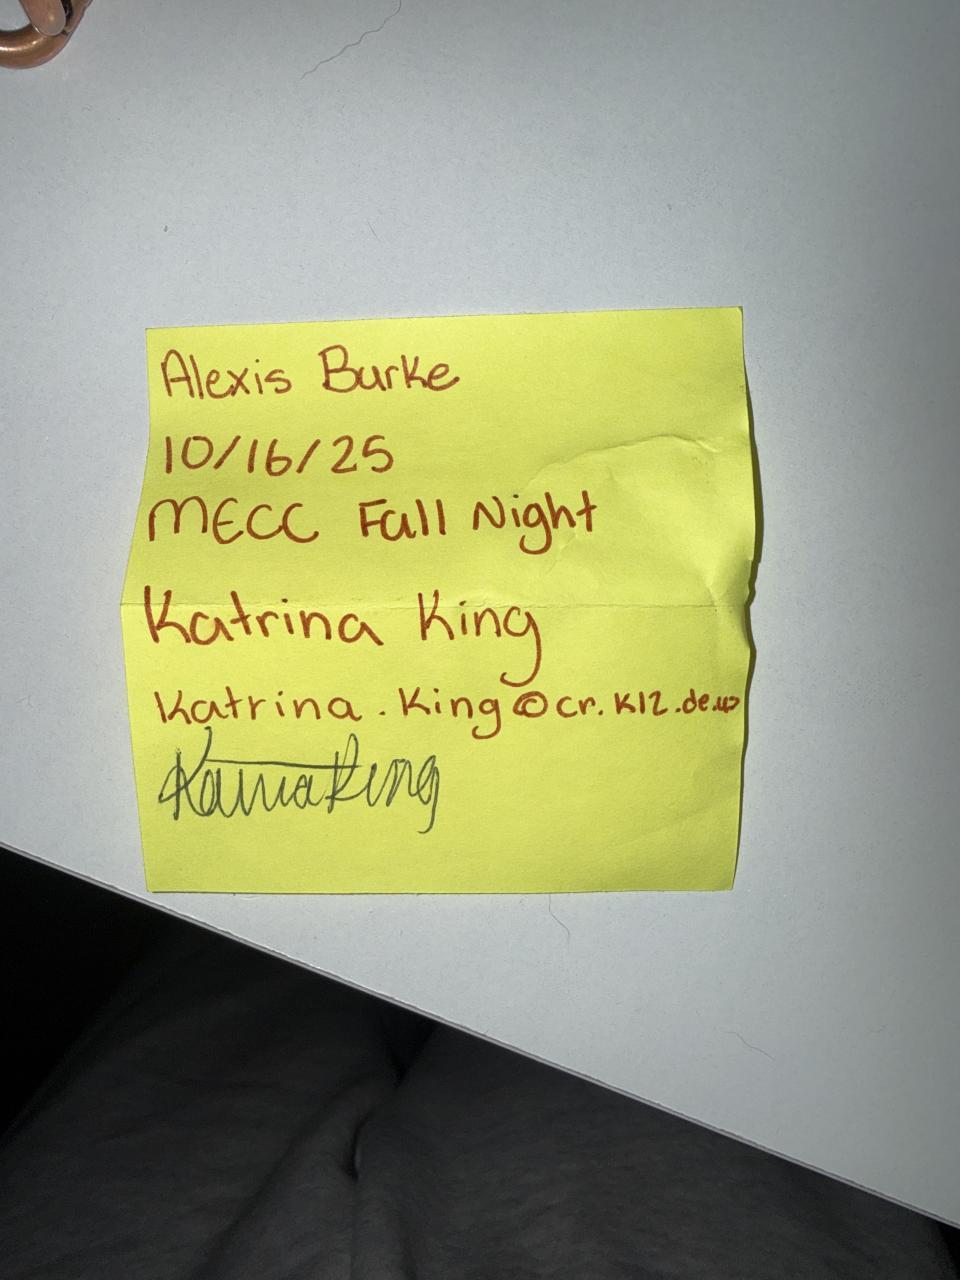 Alexis Burke
10/16/25
MECC Fall Night
Katrina King
Katrina.King@cr.k12.de.us
Katrina King